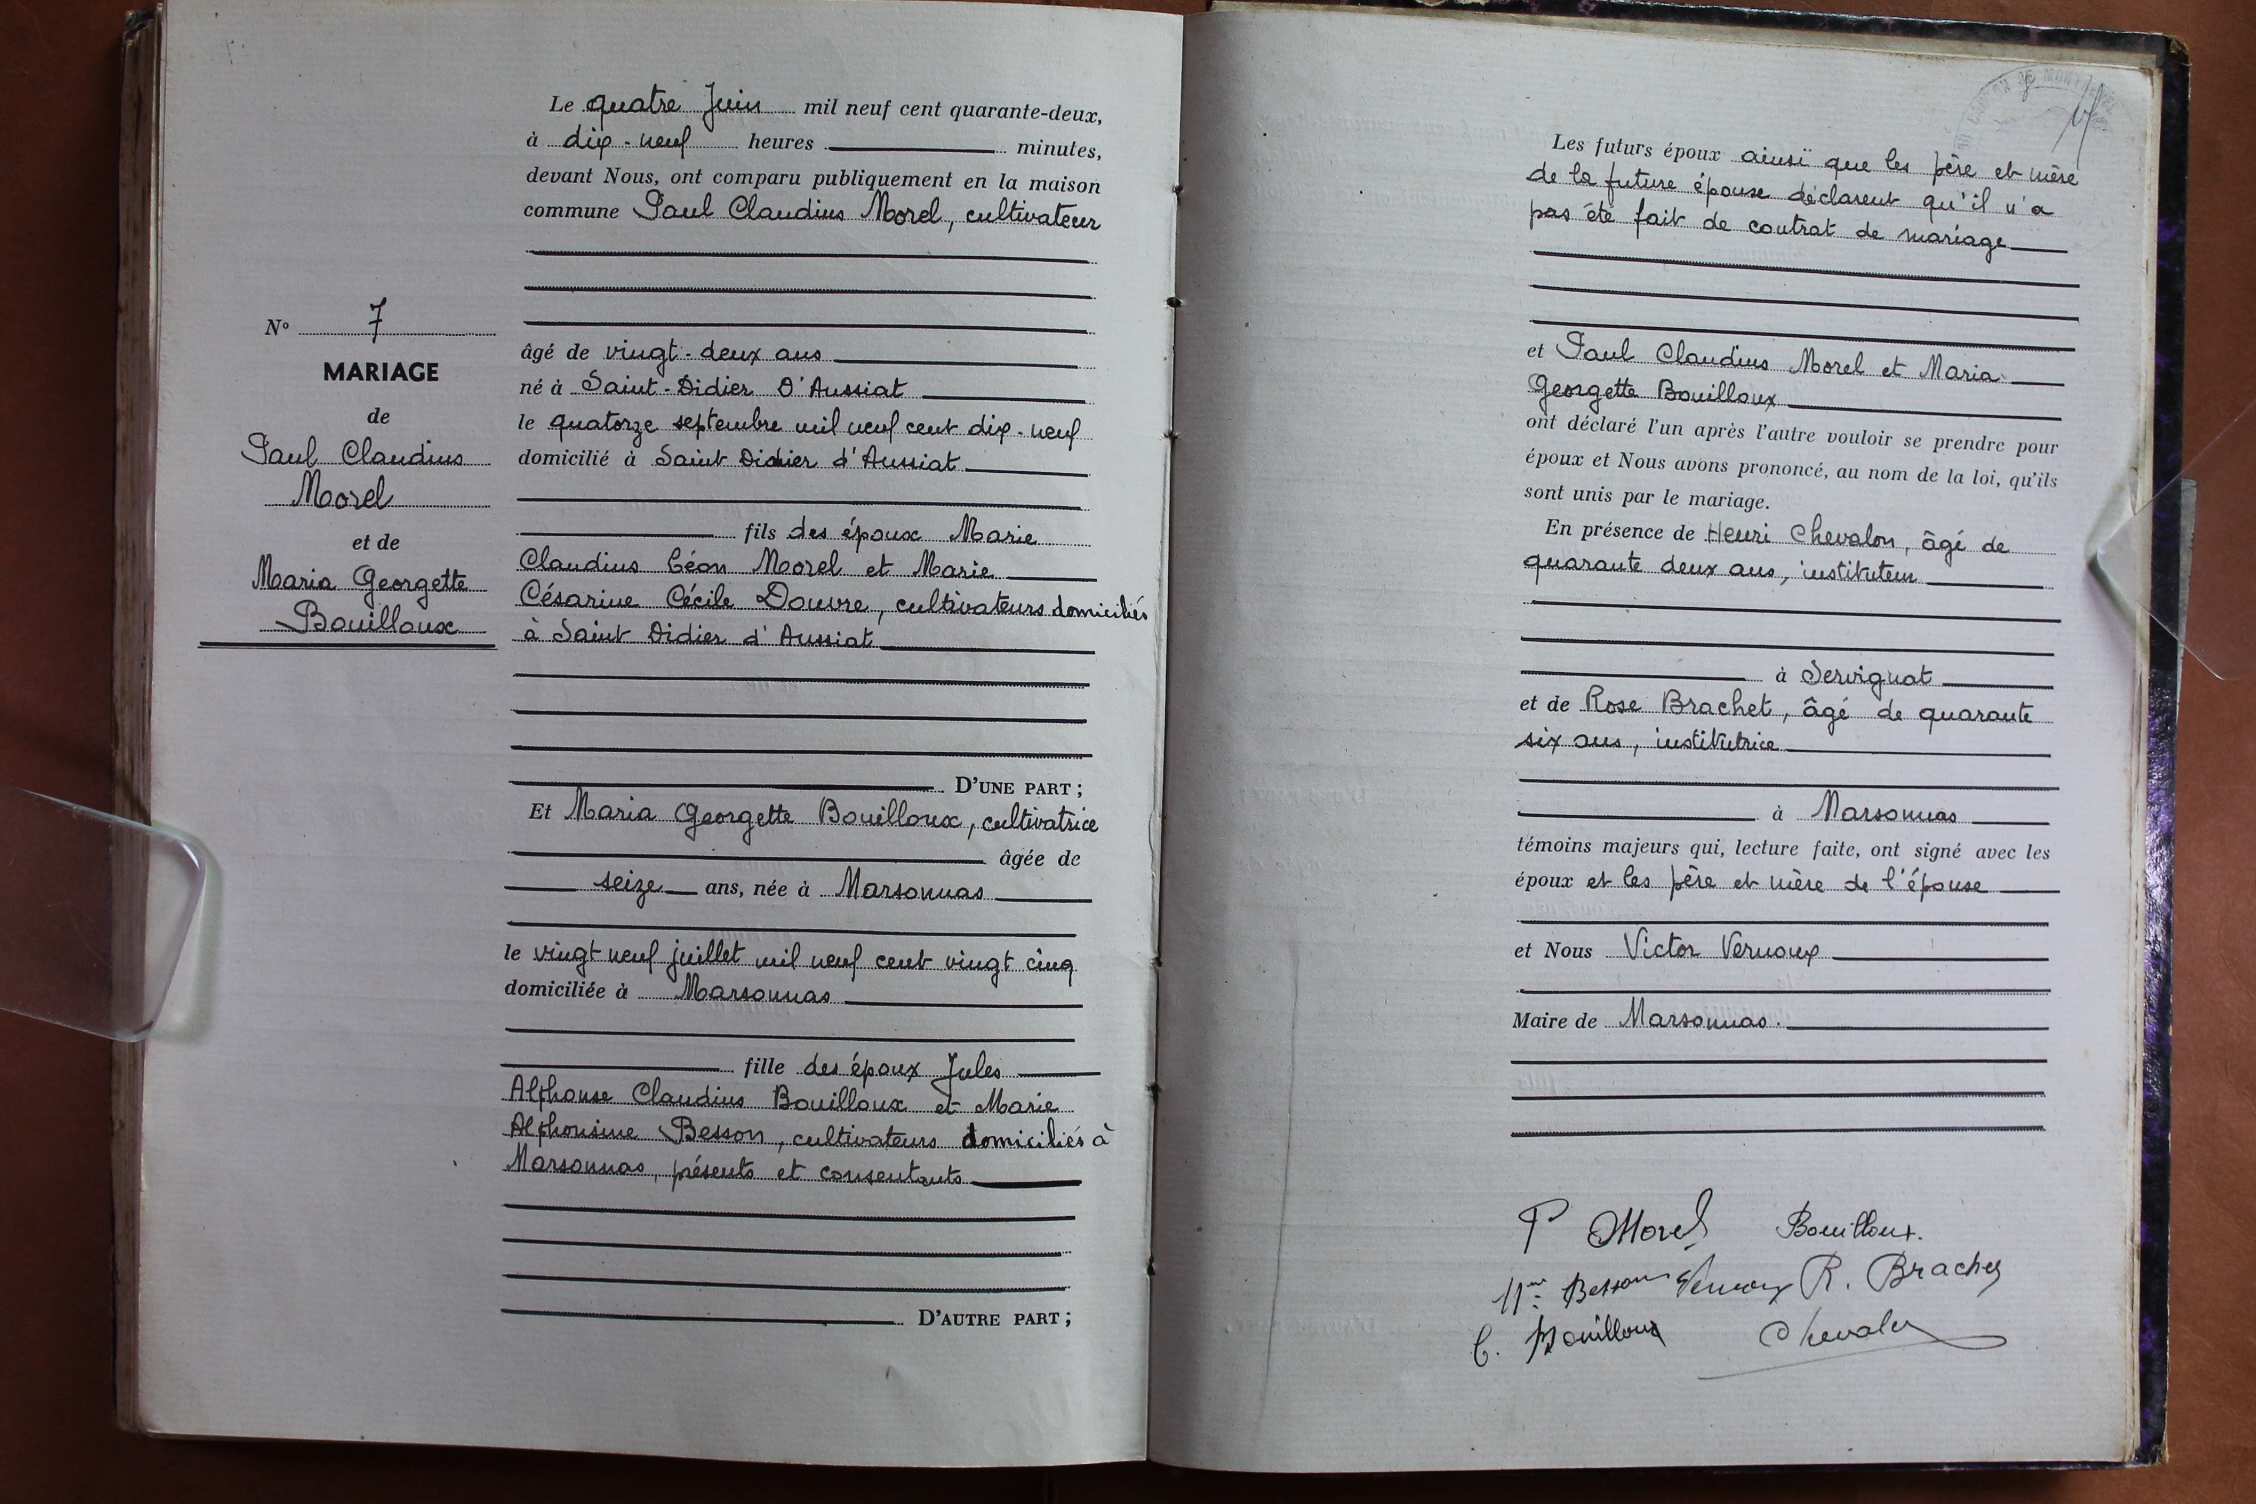 Le quatre Juin mil neuf cent quarante-deux,
à dix-neuf heures minutes,
devant Nous, ont comparu publiquement en la maison
commune Paul Claudius Morel, cultivateur
âgé de vingt-deux ans
né à Saint-Didier d'Aussiat
le quatorze septembre mil neuf cent dix-neuf
domicilié à Saint Didier d'Aussiat
fils des époux Marie
Claudius Léon Morel et Marie
Césarine Cécile Douvre, cultivateurs domiciliés
à Saint Didier d'Aussiat
D'UNE PART ;
Et Maria Georgette Bouilloux, cultivatrice
âgée de
seize ans, née à Marsonnas
le vingt neuf juillet mil neuf cent vingt cinq
domiciliée à Marsonnas
fille des époux Jules
Alphonse Claudius Bouilloux et Marie
Alphonsine Besson, cultivateurs domiciliés à
Marsonnas, présents et consentants
D'AUTRE PART ;
N° 7
MARIAGE
de
Paul Claudius
Morel
et de
Maria Georgette
Bouilloux
Les futurs époux ainsi que les père et mère
de la future épouse déclarent qu'il n'a
pas été fait de contrat de mariage
et Paul Claudius Morel et Maria
Georgette Bouilloux
ont déclaré l'un après l'autre vouloir se prendre pour
époux et Nous avons prononcé, au nom de la loi, qu'ils
sont unis par le mariage.
En présence de Henri Chevalon, âgé de
quarante deux ans, instituteur
à Servignat
et de Rose Brachet, âgé de quarante
six ans, institutrice
à Marsonnas
témoins majeurs qui, lecture faite, ont signé avec les
époux et les père et mère de l'épouse
et Nous Victor Vernoux
Maire de Marsonnas.
P Morel Bouilloux.
Besson Vernoux R. Brachet
Bouilloux Chevalon